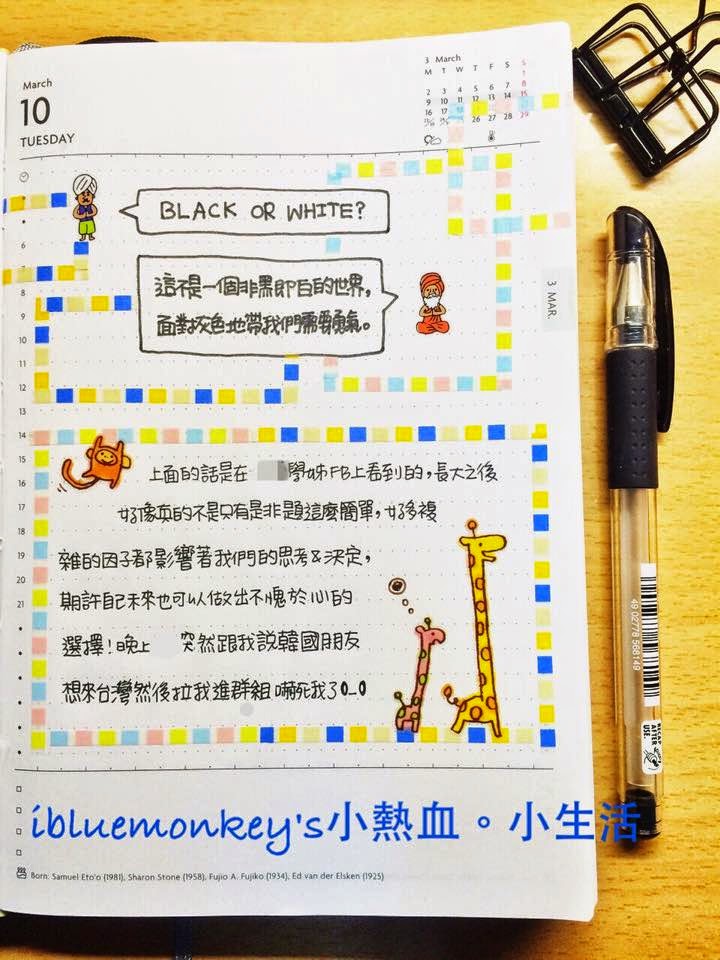 March
10
TUESDAY
3 March
M T W T F S S
1
2 3 4 5 6 7 8
9 10 11 12 13 14 15
16 17 18
26 27 28 29
BLACK OR WHITE?
這不是一個非黑即白的世界,
面對灰色地帶我們需要勇氣。
3 MAR.
6
7
8
9
10
11
12
13
14
15
16
17
18
19
20
21
上面的話是在 學姊FB上看到的,長大之後
好像真的不是只有是非題這麼簡單,好多複
雜的因子都影響著我們的思考&決定,
期許自己未來也可以做出不愧於心的
選擇!晚上 突然跟我說韓國朋友
想來台灣然後拉我進群組嚇死我了O_O
ibluemonkey's小熱血。小生活
Born: Samuel Eto'o (1981), Sharon Stone (1958), Fujio A. Fujiko (1934), Ed van der Elsken (1925)
49 02778 568149
RECAP
AFTER
USE.